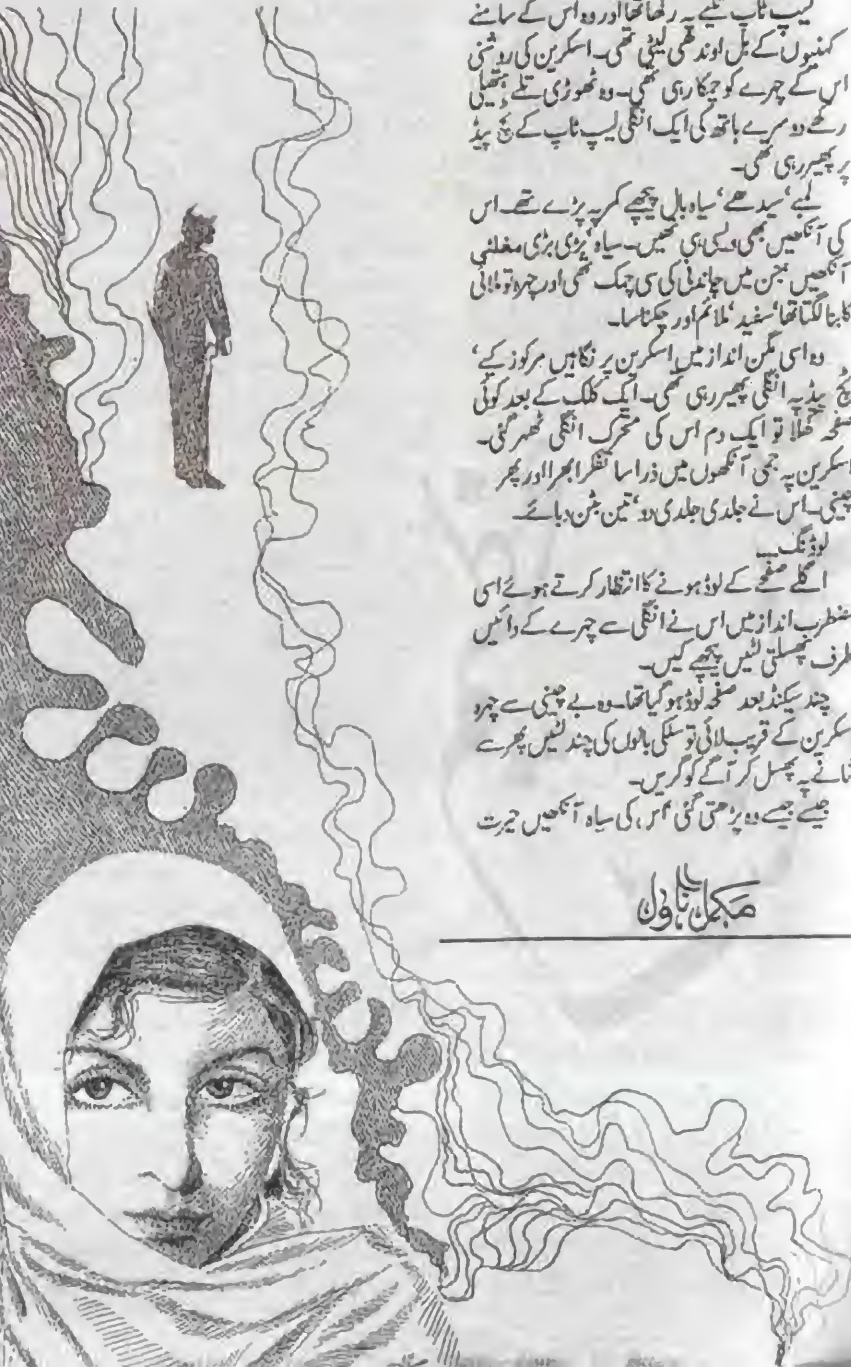 لیپ ٹاپ تکیے پہ رکھا تھا اور وہ اس کے سامنے
کہنیوں کے بل اوندھی لیٹی تھی۔ اسکرین کی روشنی
اس کے چہرے کو چمکا رہی تھی۔ وہ ٹھوڑی تلے ہتھیلی
رکھے دوسرے ہاتھ کی ایک انگلی لیپ ٹاپ کے ٹچ پیڈ
پر پھیر رہی تھی۔
لمبے، سیدھے، سیاہ بال پیچھے کمر پہ پڑے تھے۔ اس
کی آنکھیں بھی ویسی ہی تھیں۔ سیاہ، بڑی بڑی مغلئی
آنکھیں جن میں چاندنی کی سی چمک تھی اور چہرہ تو ملائی
کا بنا لگتا تھا، سفید، ملائم اور چکنا سا۔
وہ اسی مگن انداز میں اسکرین پر نگاہیں مرکوز کیے،
ٹچ پیڈ پہ انگلی پھیر رہی تھی۔ ایک کلک کے بعد کوئی
صفحہ کھلا تو ایک دم اس کی متحرک انگلی ٹھہر گئی۔
اسکرین پہ جمی آنکھوں میں ذرا سا تفکر ابھرا اور پھر
چینی۔ اس نے جلدی جلدی دو، تین بٹن دبائے۔
لوڈنگ۔۔
اگلے صفحے کے لوڈ ہونے کا انتظار کرتے ہوئے اسی
مضطرب انداز میں اس نے انگلی سے چہرے کے دائیں
طرف پھسلتی لٹیں پیچھے کیں۔
چند سیکنڈ بعد صفحہ لوڈ ہو گیا تھا۔ وہ بے چینی سے چہرہ
اسکرین کے قریب لائی تو سلکی بالوں کی چند لٹیں پھر سے
شانے پہ پھسل کر آگے کو گریں۔
جیسے جیسے وہ پڑھتی گئی، اس کی سیاہ آنکھیں حیرت
مکمل ناول